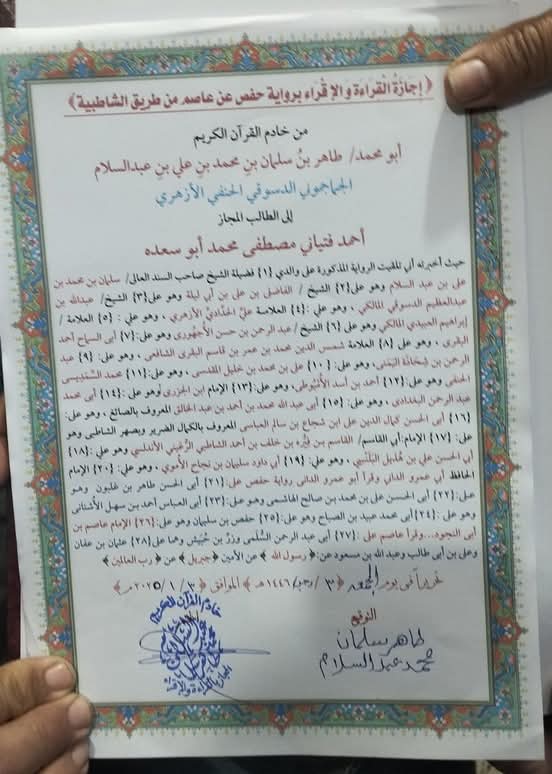 ﴿ إجازة القراءة والإقراء برواية حفص عن عاصم من طريق الشاطبية ﴾
من خادم القرآن الكريم
أبو محمد/ طاهر بن سلمان بن محمد بن علي بن عبدالسلام
الجماجموني الدسوقي الحنفي الأزهري
إلى الطالب المجاز
أحمد فتياني مصطفى محمد أبو سعده
حيث أخبرته أني تلقيت الرواية المذكورة على والدي {1} فضيلة الشيخ صاحب السند العالي/ سلمان بن محمد بن
علي بن عبد السلام وهو على{2} الشيخ / الفاضلى بن على بن أبي ليلة وهو على{3} الشيخ/ عبدالله بن
عبدالعظيم الدسوقي المالكي ، وهو علي: {4} العلامة عليّ الحدّادي الأزهري ، وهو علي : {5} العلامة /
إبراهيم العبيدي المالكي وهو على {6} الشيخ/ عبد الرحمن بن حسن الأجهوري وهو على:{7} أبي السماح أحمد
البقري ، وهو على {8} العلامة شمس الدين محمد بن عمر بن قاسم البقري الشافعي ، وهو على: {9} عبد
الرحمن بن شحاذة اليمني، وهو علي: {10} على بن محمد بن خليل المقدسى ، وهو على:{11} محمد السمديسى
الحنفي وهو على:{12} أحمد بن أسد الأميوطي ، وهو على:{13} الإمام ابن الجزري وهو على:{14} أبي محمد
عبد الرحمن البغدادي ، وهو على: {15} أبى عبد الله محمد بن أحمد بن عبد الخالق المعروف بالصائغ ، وهو على:
{16} أبى الحسن كمال الدين على بن شجاع بن سالم العباسى المعروف بالكمال الضرير وبصهر الشاطبى وهو
على: {17} الإمام/أبي القاسم/ القاسم بن فيره بن خلف بن أحمد الشاطبي الرعيني الأندلسي وهو على: {18}
أبي الحسن علي بن هذيل البلنسي ، وهو علي: {19} أبي داود سليمان بن نجاح الأموي ، وهو على: {20} الإمام
الحافظ أبي عمرو الداني وقرأ أبو عمرو الداني رواية حفص على {21} أبى الحسن طاهر بن غلبون وهو
على:{22} أبى الحسن على بن محمد بن صالح الهاشمى وهو على:{23} أبى العباس أحمد بن سهل الأشنانى
وهو على: {24} أبى محمد عبيد بن الصباح وهو على: {25} حفص بن سليمان وهو على:{26} الإمام عاصم بن
أبى النجود...وقرأ عاصم على :{27} أبى عبد الرحمن السُّلَمي وزرّ بن حُبيش وهما على{28} عثمان بن عفان
وعلى بن أبى طالب وعبدالله بن مسعود عن:﴿ رسول الله ﴾ عن الأمين﴿جبريل﴾ عن ﴿ رب العالمين﴾
تحريراً في يوم الجمعة ﴿ 3 / رجب/ 1446هـ﴾ الموافق ﴿ 3 / 1 / 2025م ﴾
التوقيع
طاهر سلمان
محمد عبد السلام
خادم القرآن الكريم